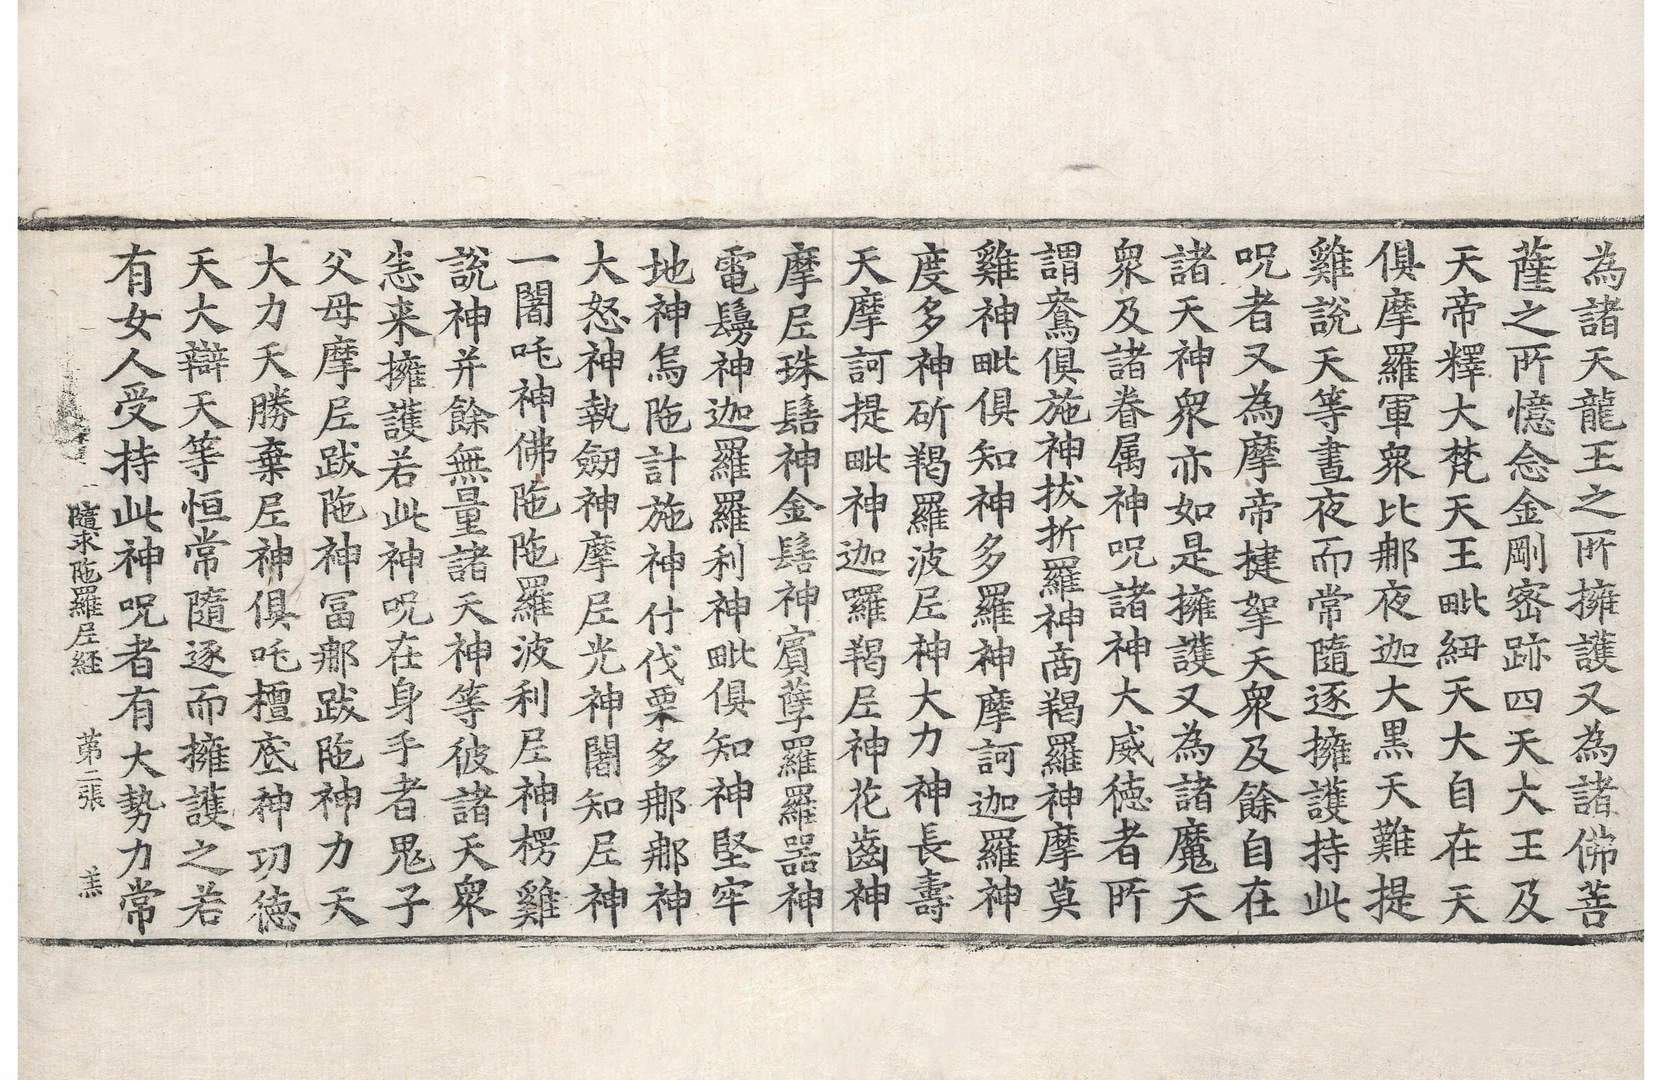 為諸天龍王之所擁護又為諸佛菩
薩之所憶念金剛密跡四天大王及
天帝釋大梵天王毗紐天大自在天
俱摩羅軍衆比那夜迦大黑天難提
雞說天等晝夜而常隨逐擁護持此
呪者又為摩帝揵拏天衆及餘自在
諸天神衆亦如是擁護又為諸魔天
衆及諸眷属神呪諸神大威徳者所
謂鴦俱施神拔折羅神商羯羅神摩莫
雞神毗俱知神多羅神摩訶迦羅神
度多神斫羯羅波尼神大力神長壽
天摩訶提毗神迦囉羯尼神花齒神
摩尼珠髻神金髻神賓孽羅羅器神
電鬘神迦羅羅利神毗俱知神堅牢
地神烏陁計施神什伐栗多那那神
大怒神執劒神摩尼光神闍知尼神
一闍吒神佛陁陁羅波利尼神楞雞
說神并餘無量諸天神等彼諸天衆
恙来擁護若此神呪在身手者鬼子
父母摩尼跋陁神冨那跋陁神力天
大力天勝棄尼神俱吒檀底神功徳
天大辯天等恒常隨逐而擁護之若
有女人受持此神呪者有大勢力常
隨求陁羅尼経 第二張 羔